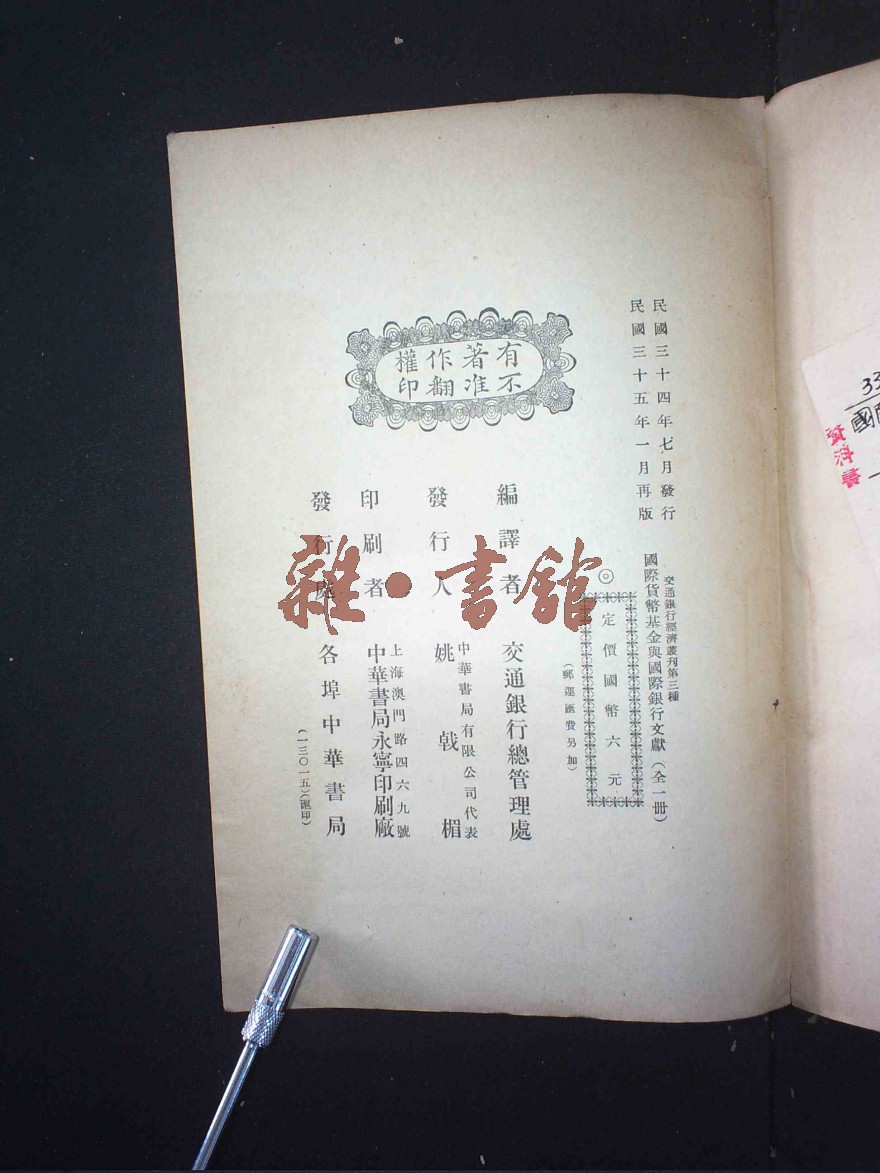 民國三十四年七月發行
民國三十五年一月再版
交通銀行經濟叢刊第三種
國際貨幣基金與國際銀行文獻（全一冊）
◎定價國幣六元
（郵運匯費另加）
有著作權
不准翻印
編譯者 交通銀行總管理處
發行人 中華書局有限公司代表
姚戟楣
印刷者 上海澳門路四六九號
中華書局永寧印刷廠
發行處 各埠中華書局
（一三〇一五）（滬印）
雜·書館
33
資料